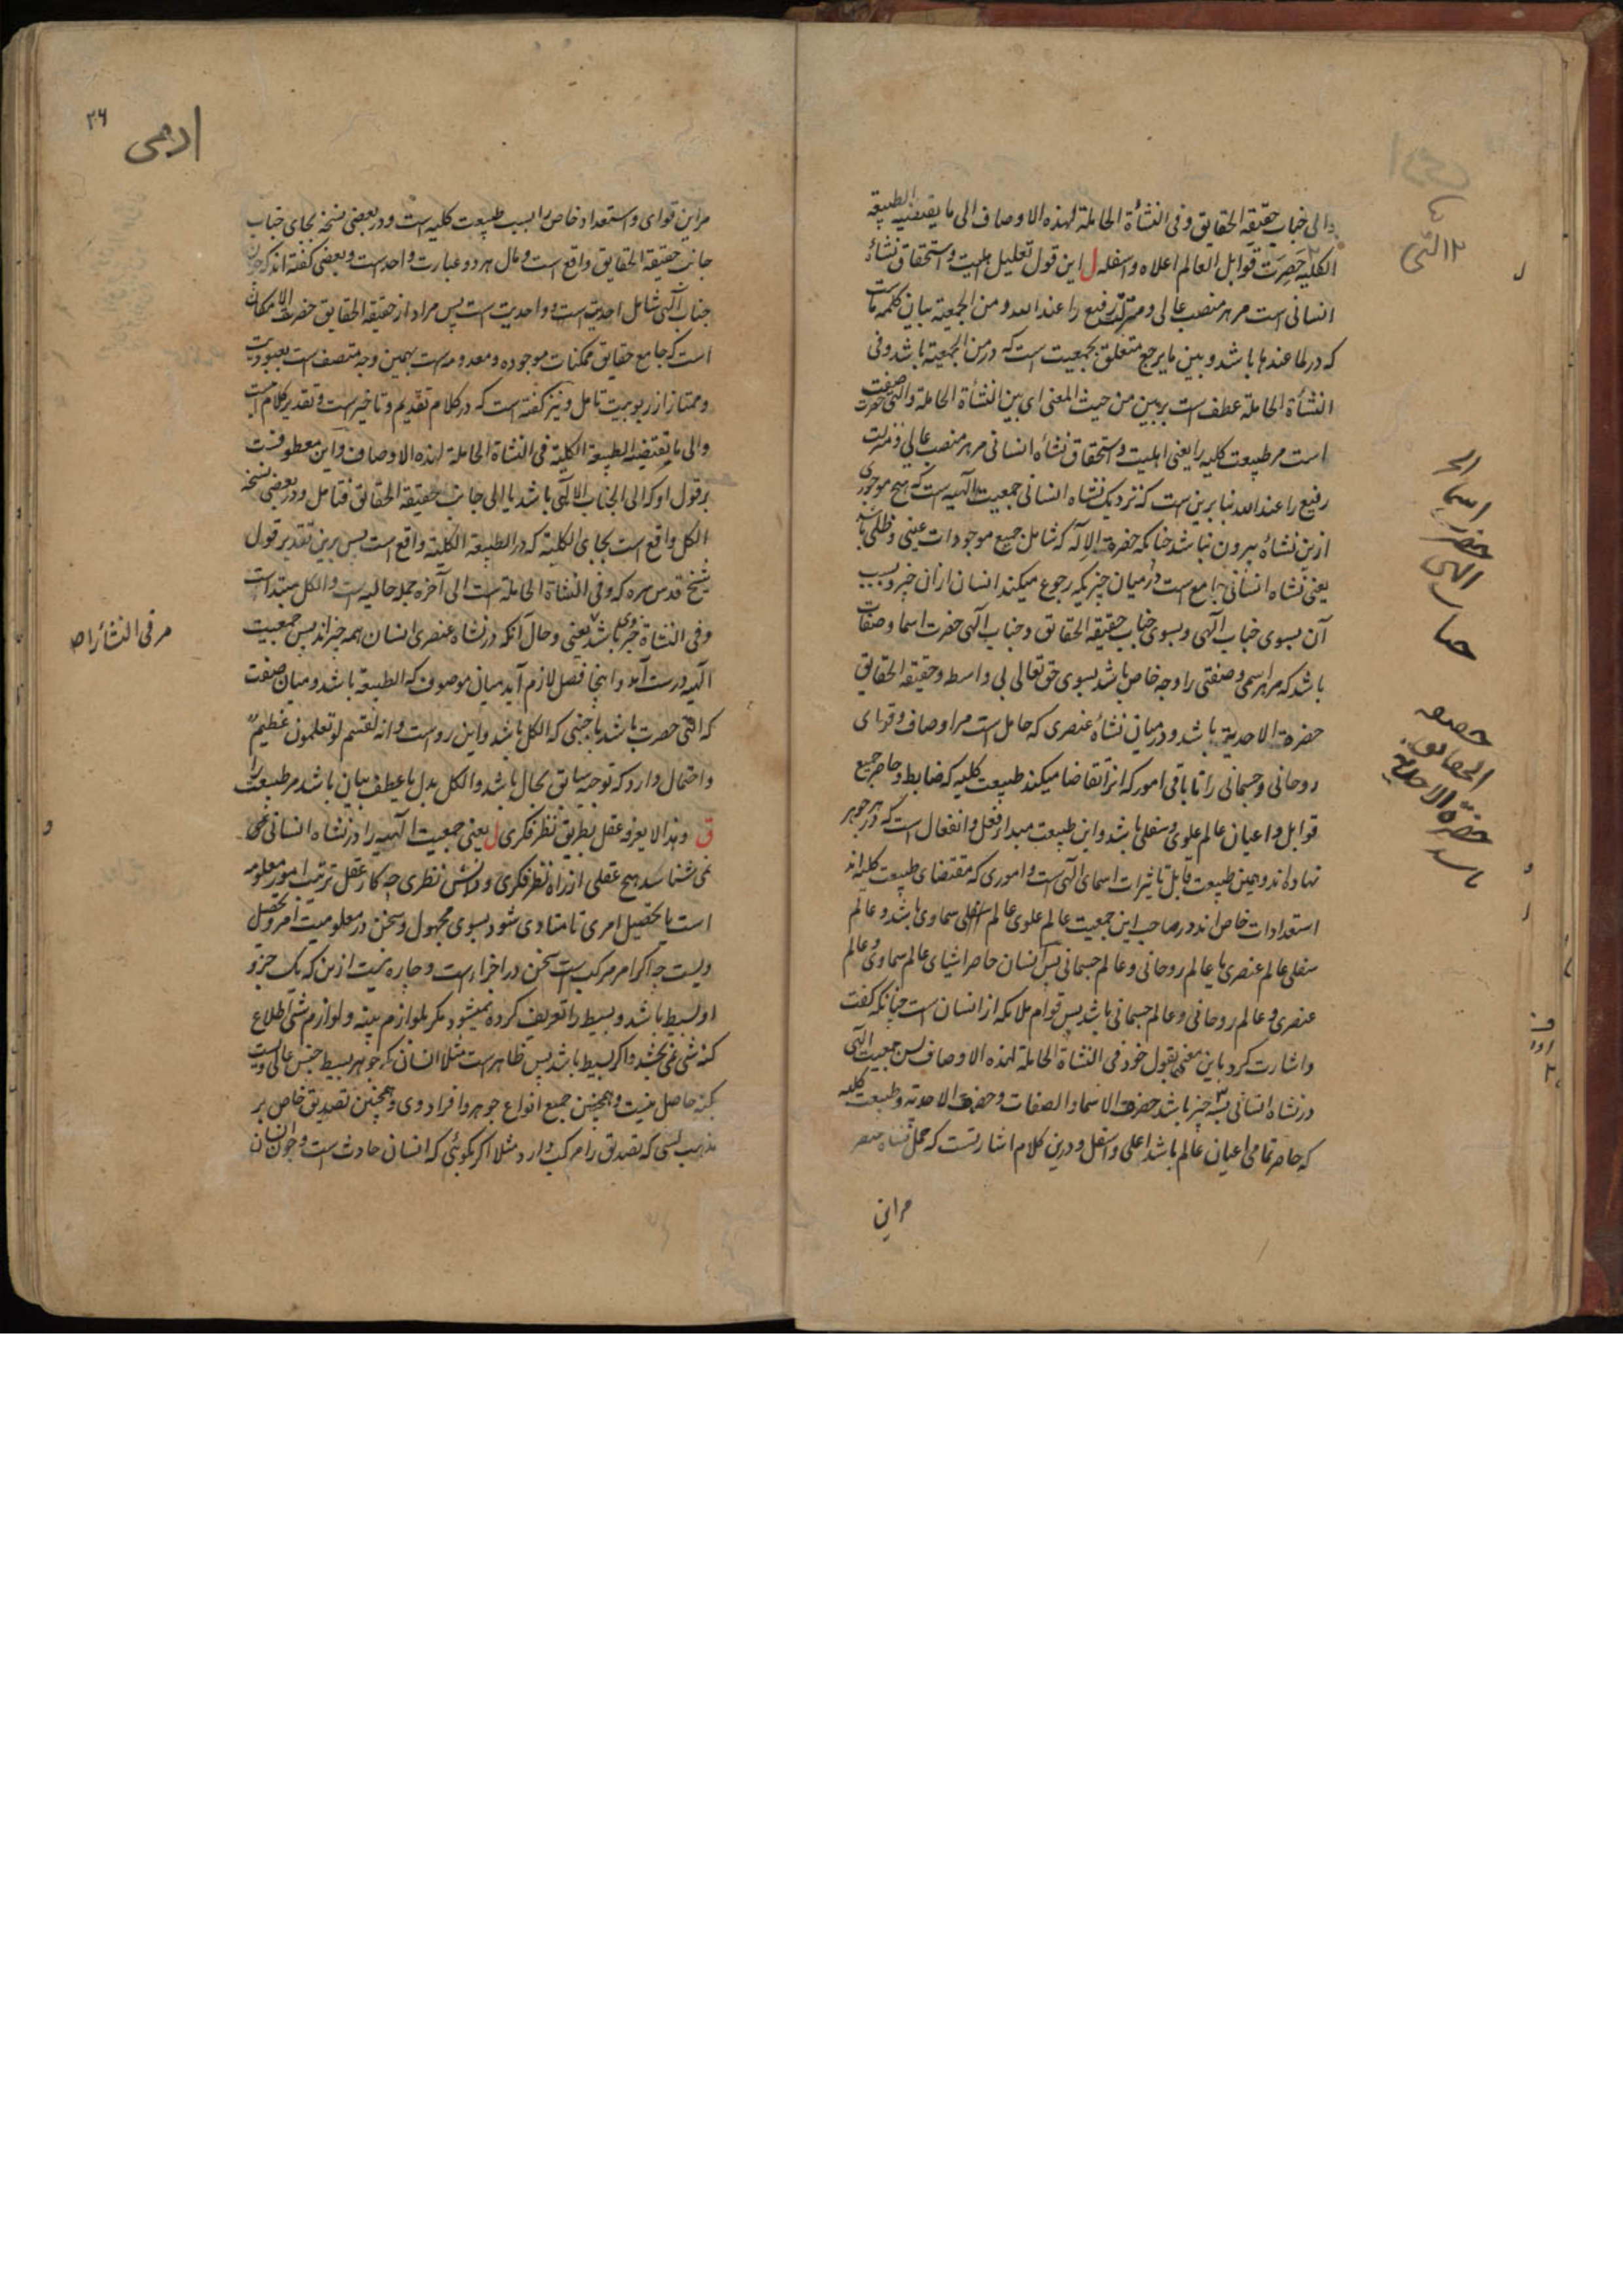 و الی جناب حقیقة الحقایق و فی النشأة الحاملة لهذه الاوصاف الی ما یقتضیه الطبیعة
الکلیة حصرت قوابل العالم اعلاه و اسفله ل این قول تعلیل اهلیت و استحقاق نشأه
انسانی است مر هر منصب عالی و منزلت رفیع را عند الله و من الجمعیة بیان کلمه ما ست
که در لما عندها باشد و بین ما یرجع متعلق بجمعیت است که در من الجمعیة باشد و فی
النشأة الحاملة عطف است بر بین من حیث المعنی ای بین النشأة الحاملة و التی حصرت صفت
است مر طبیعت کلیه را یعنی اهلیت و استحقاق نشاه انسانی مر هر منصب عالی و منزلت
رفیع را عند الله بنا برین است که نزدیک نشاه انسانی جمعیت الهیه است که هیچ موجودی
ازین نشاه بیرون نباشد چنانکه حضرة الاله که شامل جمیع موجودات عینی و ظلی باشد
یعنی نشاه انسانی جامع است در میان چیزیکه رجوع میکند انسان ازان چیز و بسبب
آن بسوی جناب الهی و بسوی جناب حقیقة الحقایق و جناب الهی حضرت اسما و صفات
باشد که مر هر اسمی و صفتی را وجه خاص باشد بسوی حق تعالی بی واسطه و حقیقة الحقایق
حضرة الاحدیة باشد و در میان نشأه عنصری که حامل است مر اوصاف و قوای
روحانی و جسمانی را تا باقی امور که انرا تقاضا میکند طبیعت کلیه که ضابط و حاصر جمیع
قوابل و اعیان عالم علوی و سفلی باشد و این طبیعت مبدا فعل و انفعال است که در هر جوهر
نهاده اند و همین طبیعت قابل تاثیرات اسمای الهی است و اموری که مقتضای طبیعت کلیه اند
استعدادات خاص اند در صاحب این جمعیت عالم علوی عالم سماوی باشد و عالم
سفلی عالم عنصری یا عالم روحانی و عالم جسمانی پس انسان حاصر اشیای عالم سماوی و عالم
عنصری و عالم روحانی و عالم جسمانی باشد پس قوام ملائکه از انسان است چنانکه گفت
و اشارت کرد باین معنی بقول خود فی النشاة الحاملة لهذه الاوصاف پس جمعیت الهی
در نشاه انسانی بسه چیز باشد حضرت الاسما و الصفات و حضرت الاحدیة و طبیعت کلیه
که حاصر تمامی اعیان عالم باشد اعلی و اسفل و درین کلام اشارتست که حمل نشاه عنصر
مر این
التی
اسما
حضرت
الهی
جناب
حقیقة
الحقایق
حضرة الاحدیة
باشد
۲۶
ادمی
مر این قوای و استعداد خاص را بسبب طبیعت کلیه است و در بعضی نسخه بجای جناب
جانب حقیقة الحقایق واقع است و مآل هر دو عبارت واحد است و بعضی گفته اند که چون
جناب الهی شامل احدیت است و واحدیت است پس مراد از حقیقة الحقایق حضرت الامکان
است که جامع حقایق ممکنات موجوده و معدومه است بهمین وجه متصف است بعبودیت
و ممتاز از ربوبیت تامل و نیز گفته است که در کلام تقدیم و تاخیر است و تقدیر کلام است
و الی ما تقتضیه الطبیعة الکلیة فی النشاة الحاملة لهذه الاوصاف و این معطوفست
بر قول او که الی الجناب الالهی باشد یا الی جانب حقیقة الحقائق فتامل و در بعضی نسخه
الکل واقع است بجای الکلیة که در الطبیعة الکلیة واقع است پس برین تقدیر قول
شیخ قدس سره که و فی النشاة الحاملة است الی آخره جمله حالیه است و الکل مبتداست
و فی النشاة خبر وی باشد یعنی و حال آنکه در نشاه عنصری انسان همه چیز اند پس جمعیت
الهیه درست آمد و اینجا فصل لازم آید میان موصوف که الطبیعة باشد و میان صفت
که التی حصرت باشد باجنبی که الکل باشد و این رواست و انه لقسم لو تعلمون عظیم
و احتمال دارد که توجیه سابق بحال باشد و الکل بدل یا عطف بیان باشد مر طبیعت را
ق و هذا لا یعرفه عقل بطریق نظر فکری ل یعنی جمعیت الهیه را در نشاه انسانی
نمی شناسد هیچ عقلی از راه نظر فکری و دانش نظری چه کار عقل ترتیب امور معلومه
است یا تحصیل امری تا متادی شود بسوی مجهول و سخن در معلومیت امر و تحصیل
ویست چه اگر امر مرکب است سخن در اجزاء است و چاره نیست ازین که یک جزو
او بسیط باشد و بسیط را تعریف کرده نمیشود مگر بلوازم بینه و لوازم شی اطلاع
کنه شی نمی بخشد و اگر بسیط باشد پس ظاهر است مثلا انسان که جوهر بسیط جنس عالی ویست
بکنه حاصل نیست و همچنین جمیع انواع جوهر و افراد وی و همچنین تصدیق خاص بر
مذهب کسی که تصدیق را مرکب دارد مثلا اگر بگوئی که انسان حادث است و چون انسان
مر فی النشأة را ص